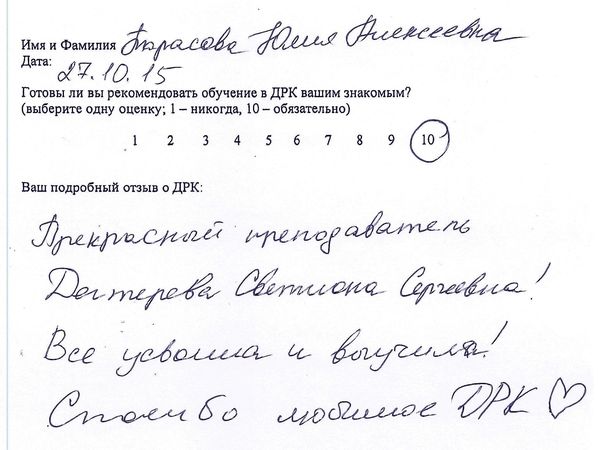 Имя и Фамилия Тарасова Юлия Алексеевна
Дата: 27.10.15
Готовы ли вы рекомендовать обучение в ДРК вашим знакомым?
(выберите одну оценку; 1 – никогда, 10 – обязательно)
1 2 3 4 5 6 7 8 9 10
Ваш подробный отзыв о ДРК:
Прекрасный преподаватель
Дегтерева Светлана Сергеевна!
Все усвоила и выучила!
Спасибо любимое ДРК